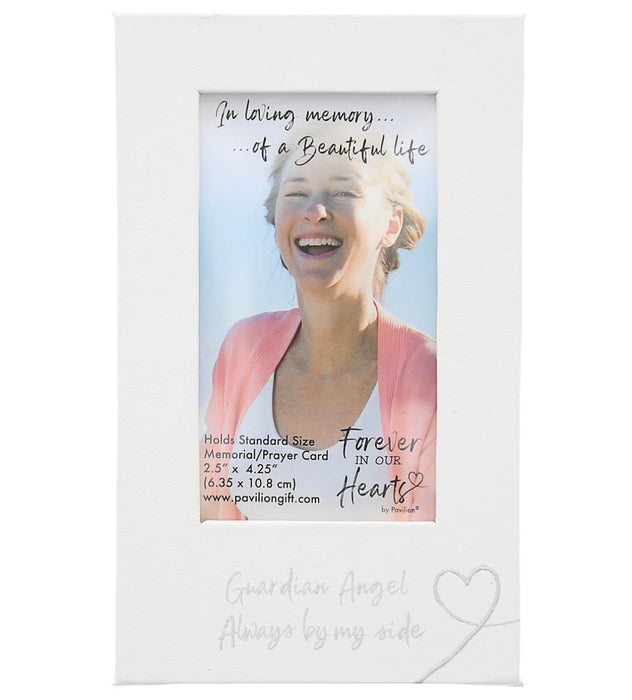 In loving memory...
...of a Beautiful life
Holds Standard Size
Memorial/Prayer Card
2.5" x 4.25"
(6.35 x 10.8 cm)
www.paviliongift.com
Forever
IN OUR
Hearts
by Pavilion®
Guardian Angel
Always by my side